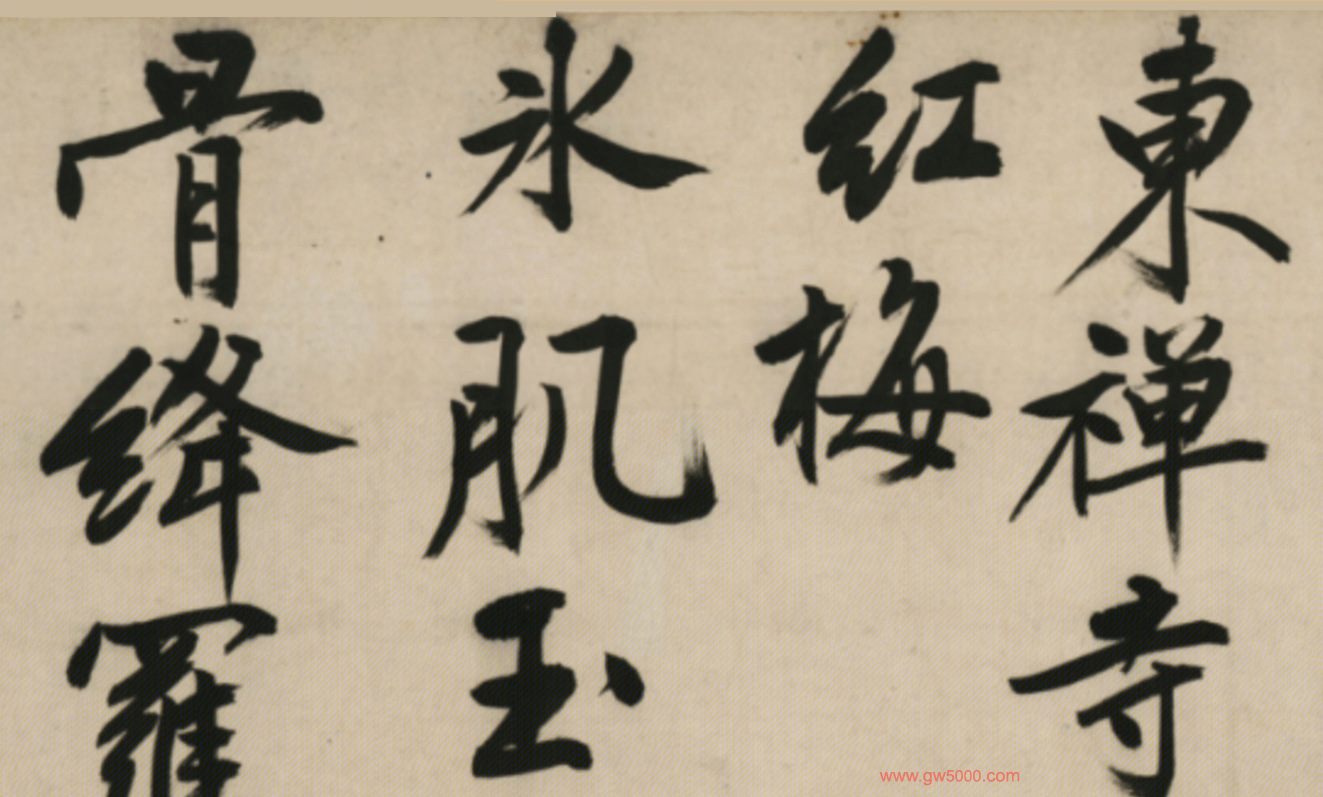 東禅寺
紅梅
氷肌玉
骨絳羅
www.gw5000.com